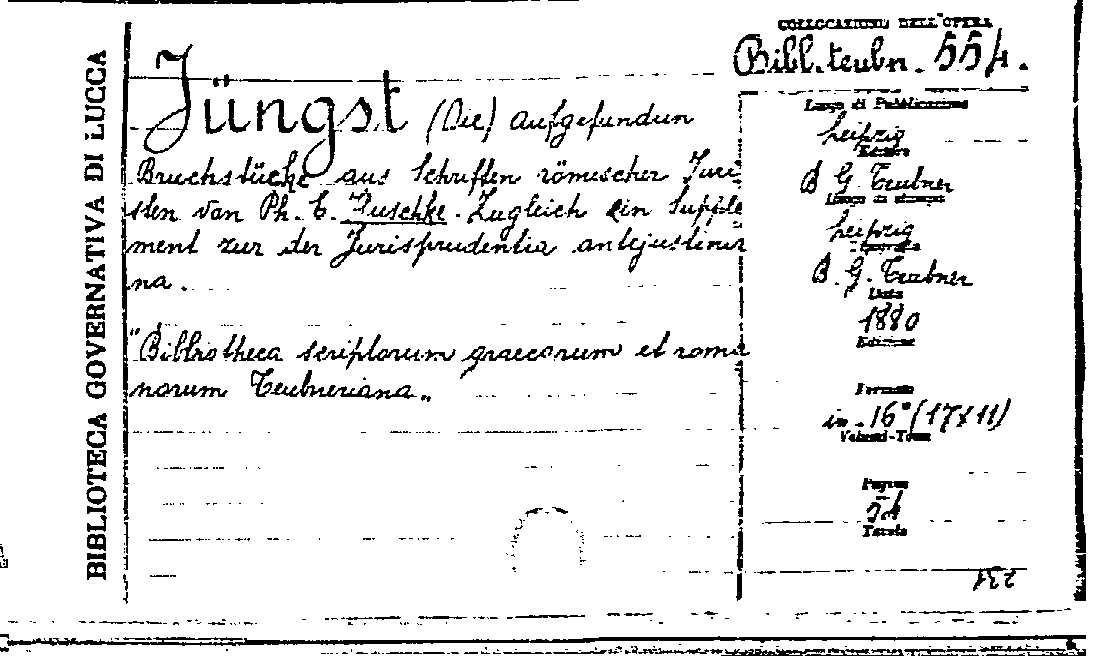 BIBLIOTECA GOVERNATIVA DI LUCCA
COLLOCAZIONE DELL'OPERA
Bibl. teubn. 554.
Jüngst (Die) aufgefundun
Bruchstücke aus Schriften römischer Juri
sten van Ph. E. Huschke. Zugleich ein Supple
ment zur der Jurisprudentia antejustinia
na.
"Bibliotheca scriptorum graecorum et roma
norum Teubneriana„
Luogo di Pubblicazione
Leipzig
Editore
B G. Teubner
Luogo di stampa
Leipzig
B. G. Teubner
Data
1880
Edizione
Formato
in. 16° (17x11)
Volumi-Tomi
Pagine
54
Tavole
231